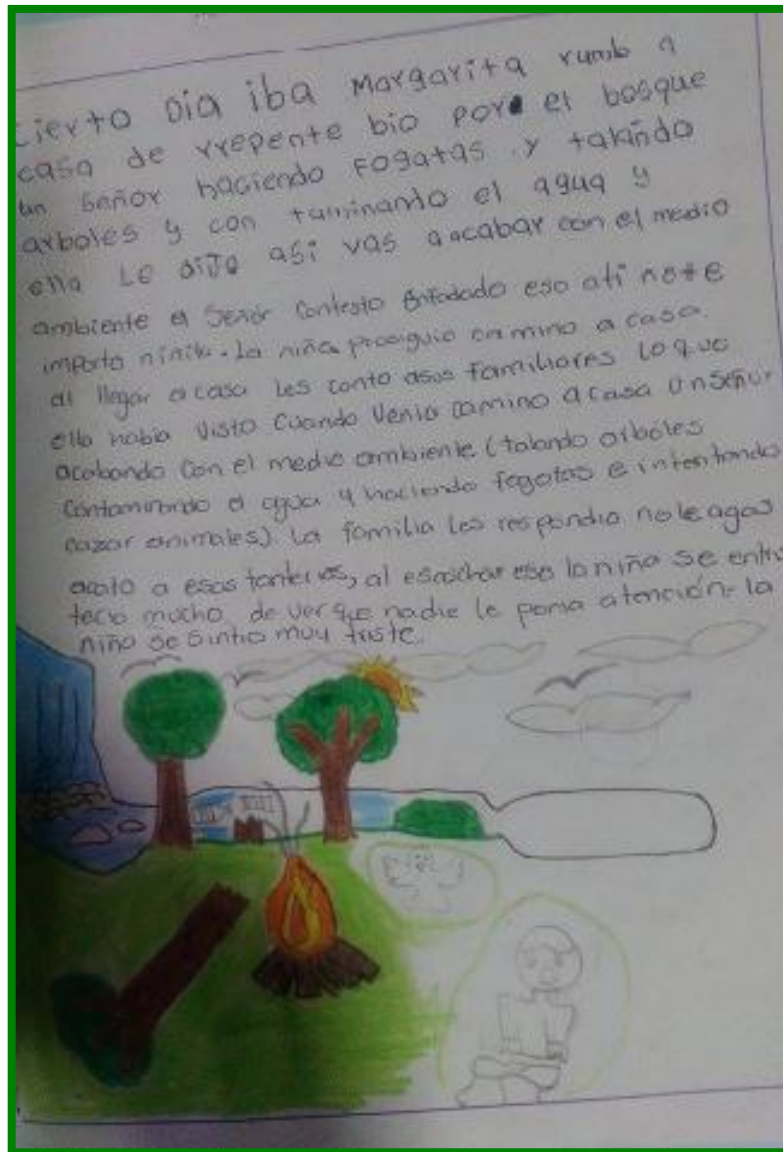 Cierto Dia iba Margarita rumbo a
casa de rrepente bio por el bosque
un señor haciendo Fogatas y talando
arboles y con taminando el agua y
ella Le dijo asi vas a acabar con el medio
ambiente el Señor Contesto Enfadado eso ati note
importa niñita. La niña prosiguio camino a casa.
al llegar a casa les conto asus familiares lo que
ella habia visto Cuando Venia camino a casa Un señor
acabando Con el medio ambiente (talando arboles
Contaminando el agua y haciendo fogatas e intentando
cazar animales) La familia les respondio no le agas
a esas tonterias, al escuchar eso la niña se entris
tecio mucho de ver que nadie le ponia atención. la
niña se sintio muy triste.